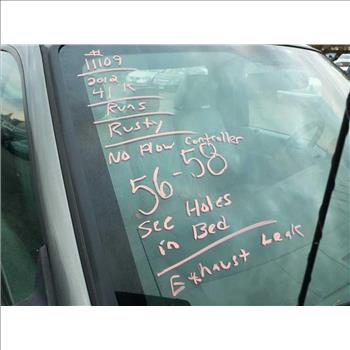 #
11109
2012
41K
Runs
Rusty
No Plow Controller
56-58
See Holes
in Bed
Exhaust Leak